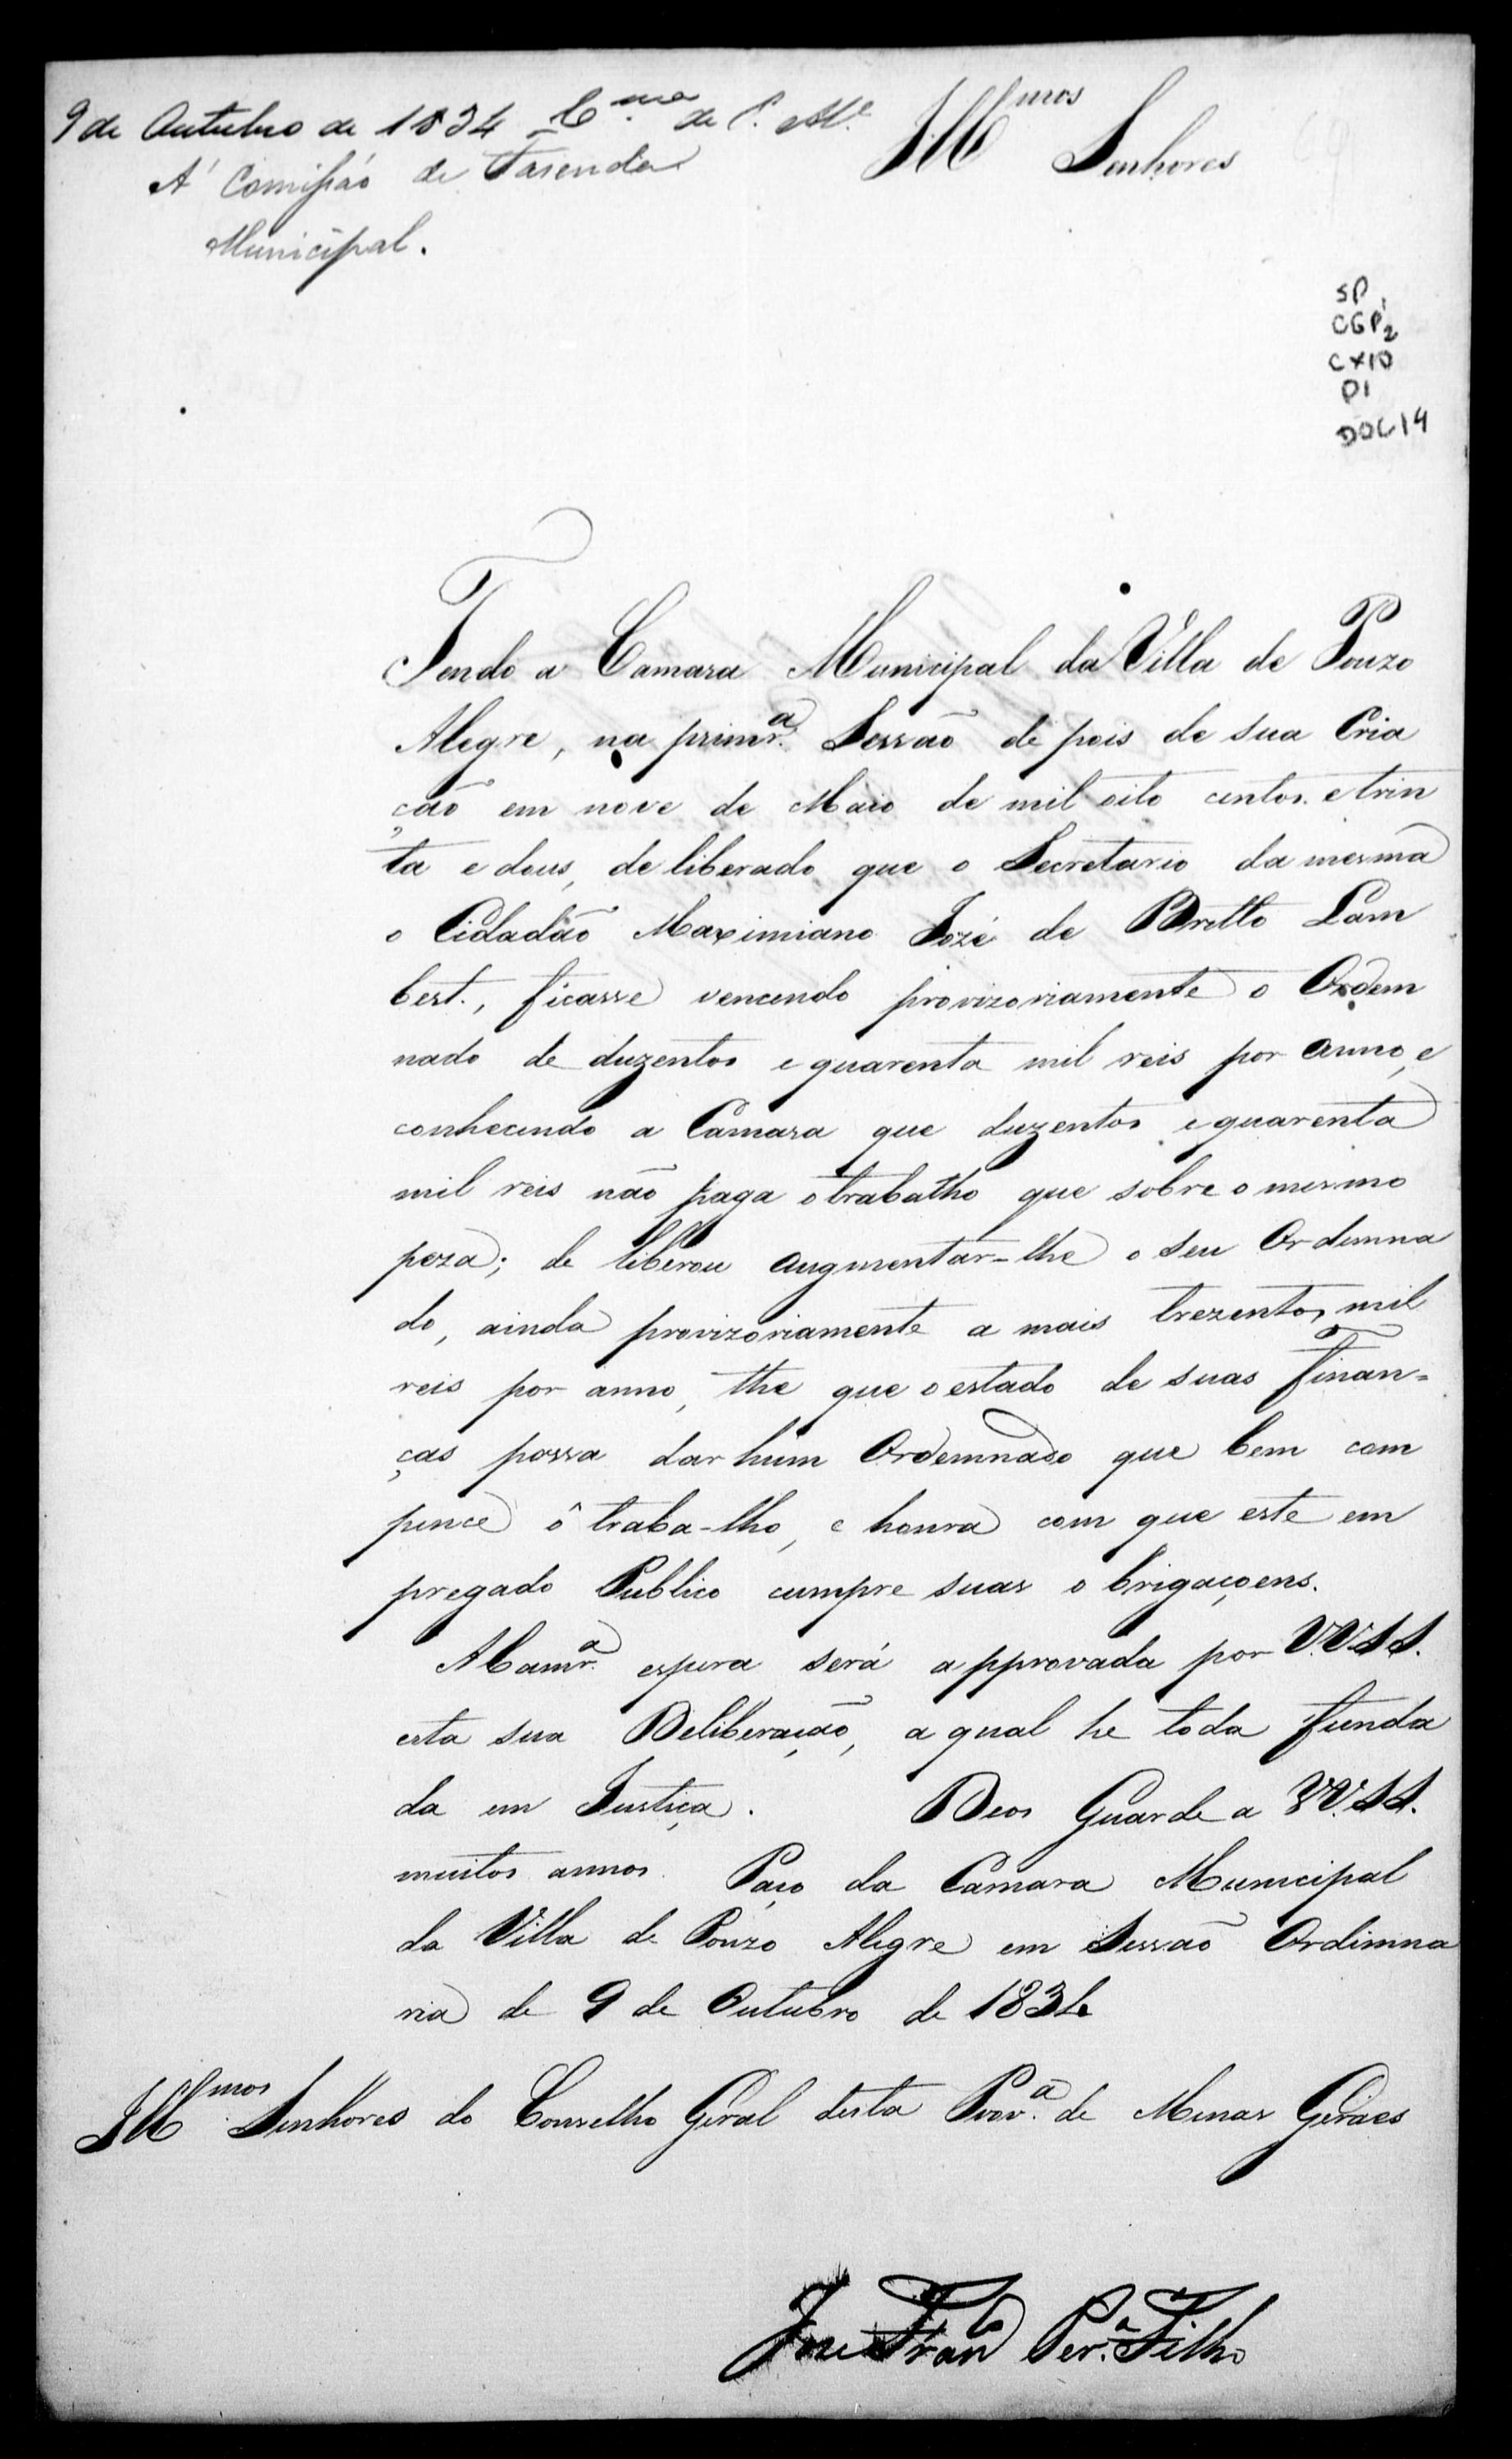 9 de Outubro de 1834 C.mra de P. Al.e
Á Comissão de Fasenda
Municipal.
Illmos Senhores
SP
CGP2
CX10
P1
DOC14
Tendo a Camara Municipal da Villa de Pouzo
Alegre, na primr.a Sessão de pois de sua Cria
ção em nove de Maio de mil oito centos. e trin
ta e dous, de liberado que o Secretario da mesma
o Cidadão Maximiano Jozé de Britto Lam
bert., ficasse vencendo provizoriamente o Ordem
nado de duzentos e quarenta mil reis por anno, e
conhecendo a Camara que duzentos e quarenta
mil reis não paga o trabalho que sobre o mesmo
peza; de liberou augmentar-lhe o seu Ordemna
do, ainda provizoriamente a mais trezentos mil
reis por anno, the que o estado de suas finan=
ças possa dar hum Ordemnado que bem com
pence ô traba-lho, e honra com que este em
pregado Publico cumpre suas o brigaçoens.
A Camr.a espera será a pprovada por V.V.S.S.
esta sua Deliberação, a qual he toda funda
da em Justiça. Deos Guarde a V.V.S.S.
muitos annos. Paço da Camara Municipal
da Villa de Pouzo Alegre em Sessão Ordimna
ria de 9 de Outubro de 1834
Illmos Senhores do Conselho Geral desta Prov.a de Minas Geraes
Joze Franco Per.a Filho